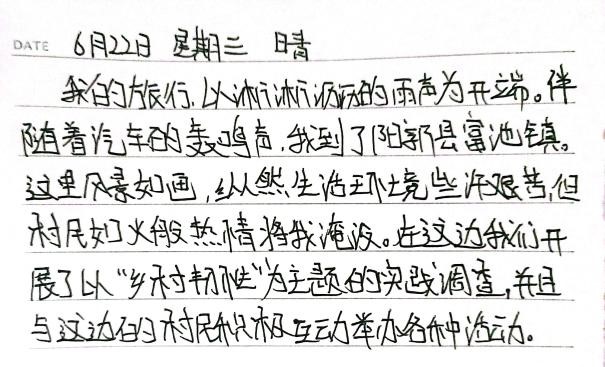 DATE 6月22日 星期三 晴
我的旅行,以淅淅沥沥的雨声为开端。伴
随着汽车的轰鸣声,我到了阳新县富池镇。
这里风景如画,纵然生活环境些许艰苦,但
村民如火般热情将我淹没。在这边我们开
展了以“乡村韧性”为主题的实践调查,并且
与这边的村民积极互动举办各种活动。